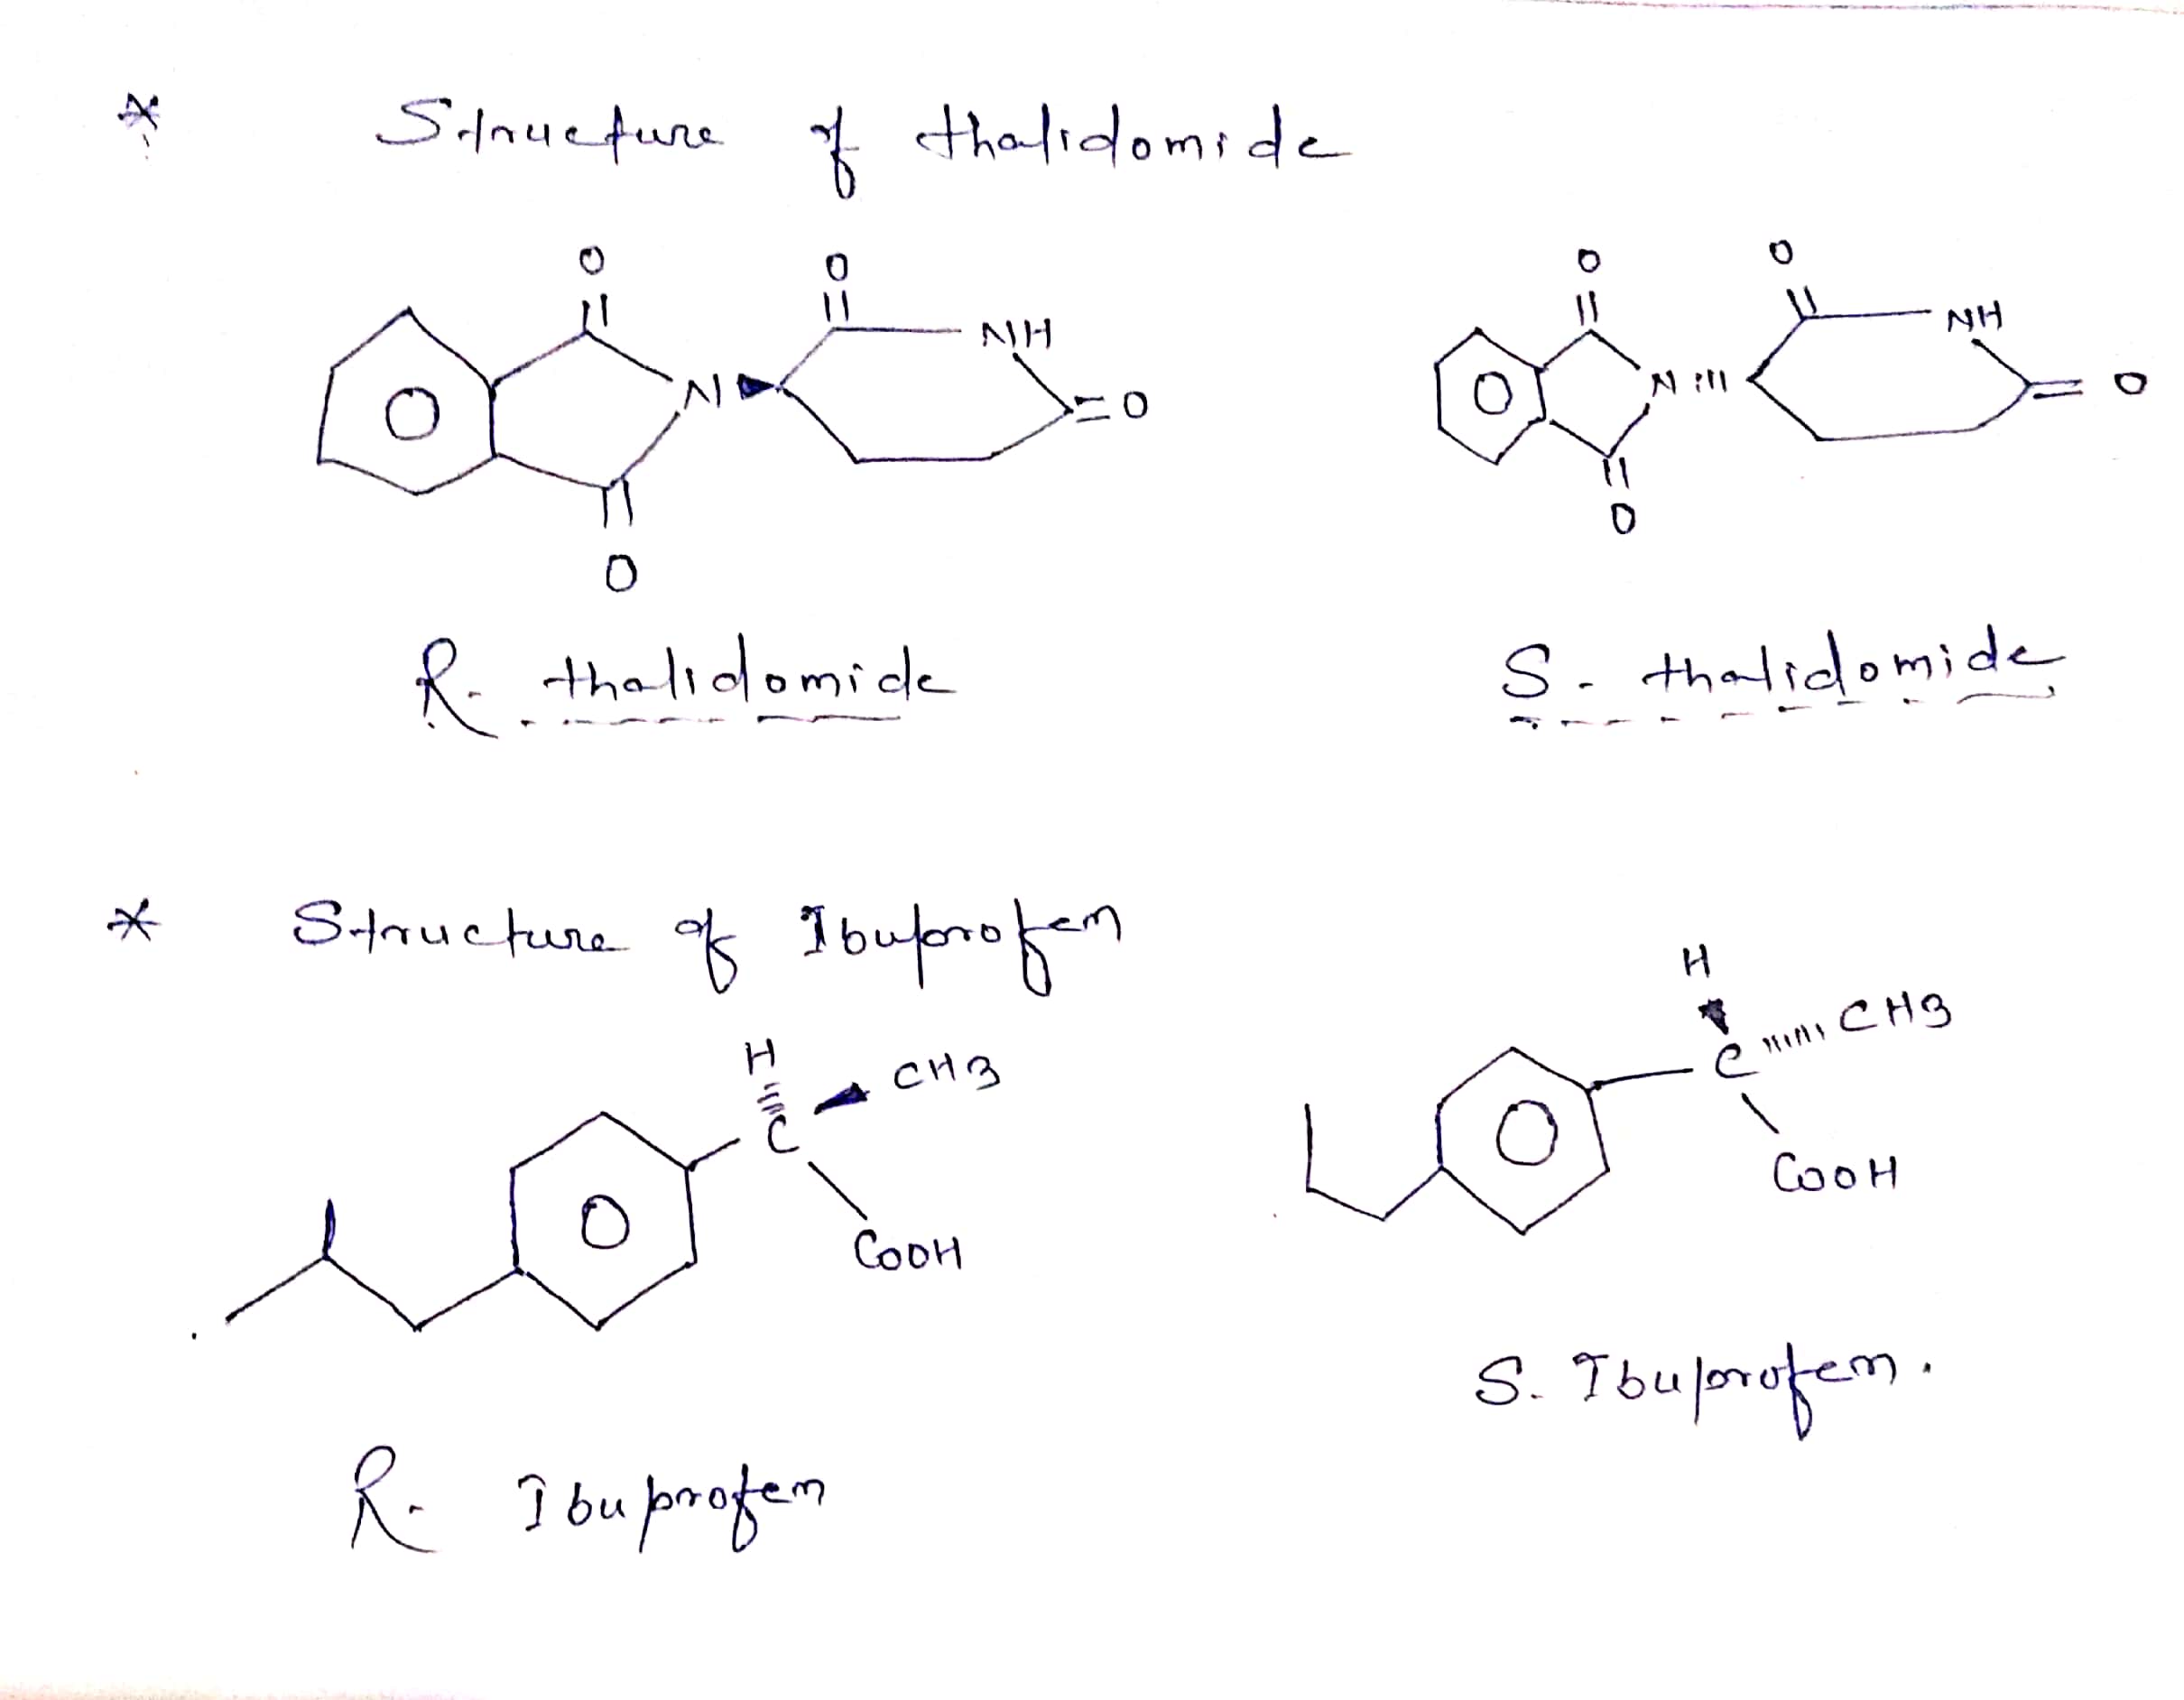 * Structure of thalidomide
O O O O
NH NH
N N
O O
O O
R- thalidomide S- thalidomide
* Structure of Ibuprofen
H
H CH3 C CH3
C
COOH COOH
S. Ibuprofen.
R- Ibuprofen